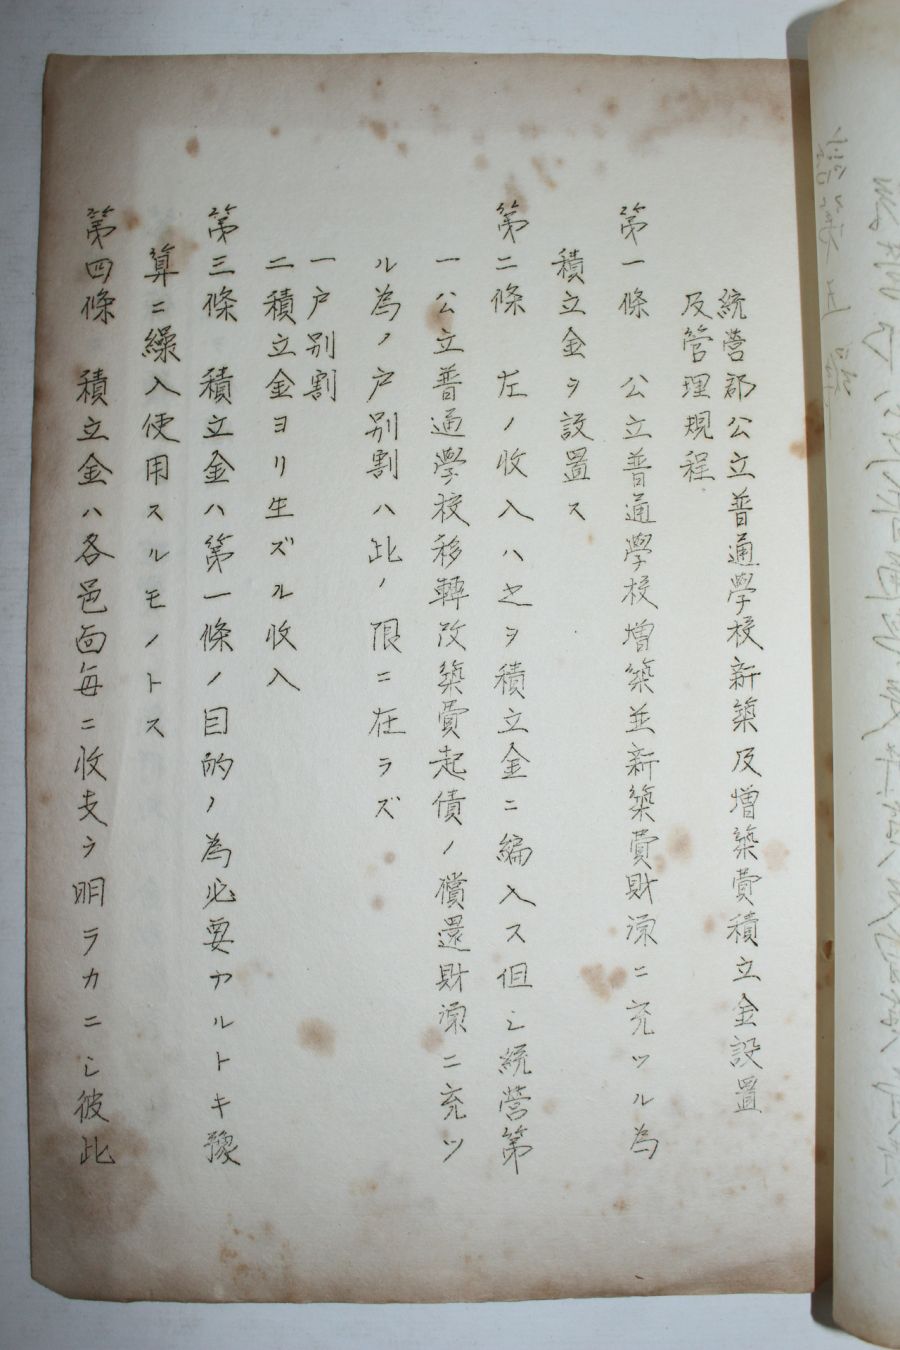 統營郡公立普通學校新築及増築費積立金設置
及管理規程
第一條　公立普通學校増築並新築費財源ニ充ツル為
積立金ヲ設置ス
第二條　左ノ收入ハ之ヲ積立金ニ編入ス但シ統營第
一公立普通學校移轉改築費起債ノ償還財源ニ充ツ
ル為ノ戸別割ハ此ノ限ニ在ラズ
一戸別割
二積立金ヨリ生ズル收入
第三條　積立金ハ第一條ノ目的ノ為必要アルトキ豫
算ニ繰入使用スルモノトス
第四條　積立金ハ各邑面毎ニ收支ヲ明ラカニシ彼此